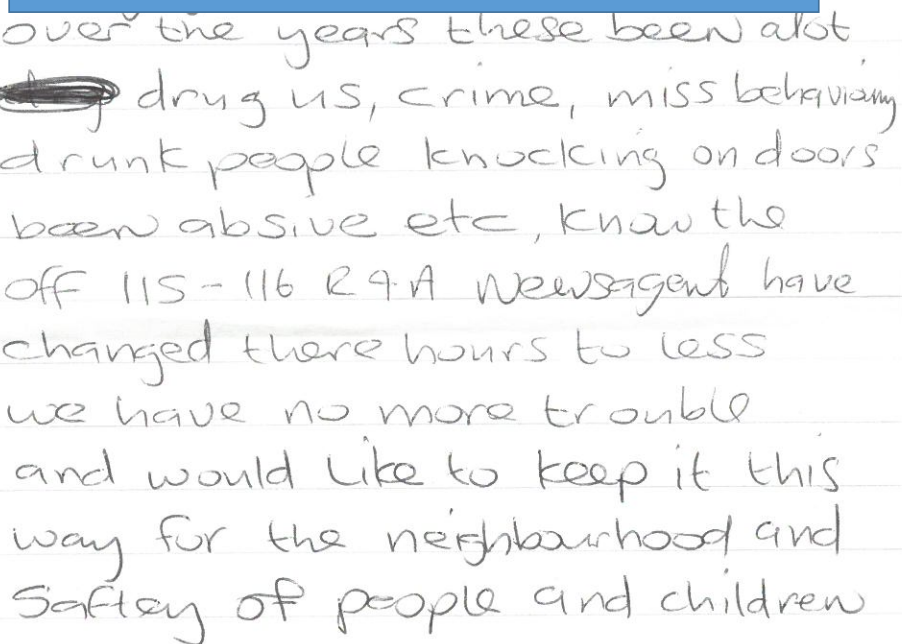 over the years these been alot
drug us, crime, miss behaviany
drunk people knocking on doors
been absive etc, know the
off 115-116 R9A Newsagent have
changed there hours to less
we have no more trouble
and would like to keep it this
way for the neighbourhood and
Saftey of people and children